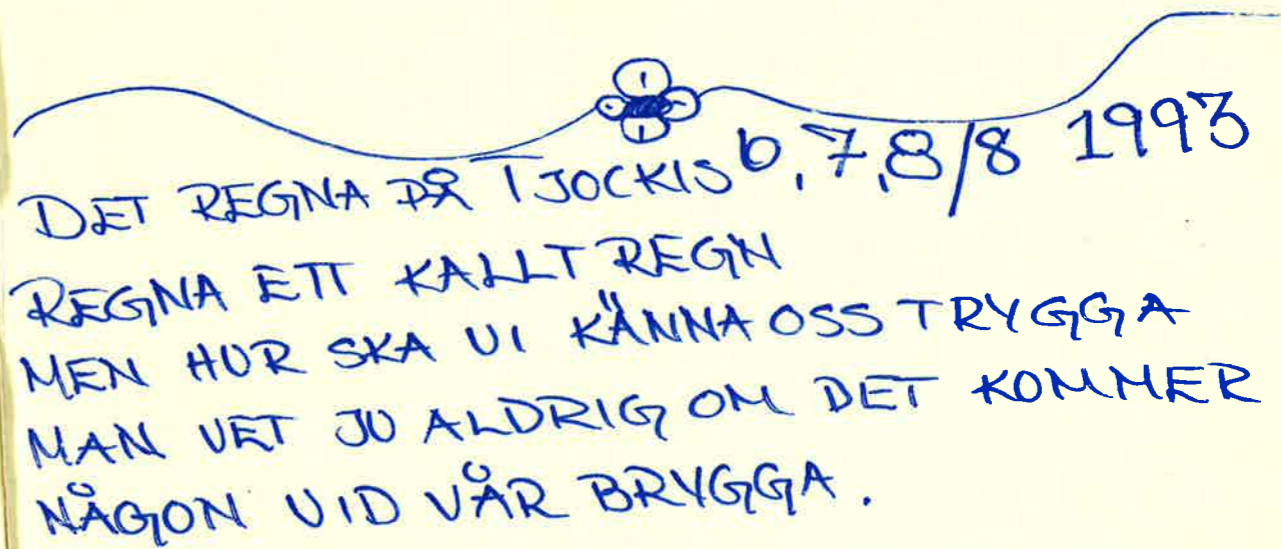 DET REGNA PÅ TJOCKIS 6,7,8/8 1993
REGNA ETT KALLT REGN
MEN HUR SKA VI KÄNNA OSS TRYGGA
MAN VET JU ALDRIG OM DET KOMMER
NÅGON VID VÅR BRYGGA.